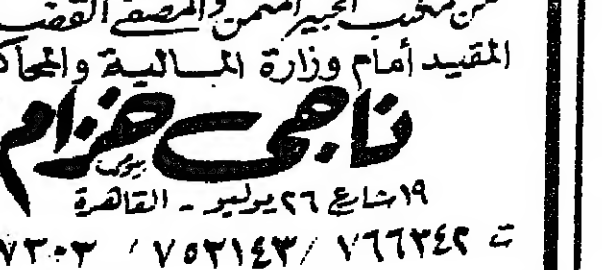 من مكتب الخبير المثمن والمصفى القض
المقيد أمام وزارة المالية والمحاك
ناجى خزام
١٩ شارع ٢٦ يوليو - القاهرة
ت ٧٦٦٣٤٢ / ٧٥٣١٤٣ / ٧٣٠٣